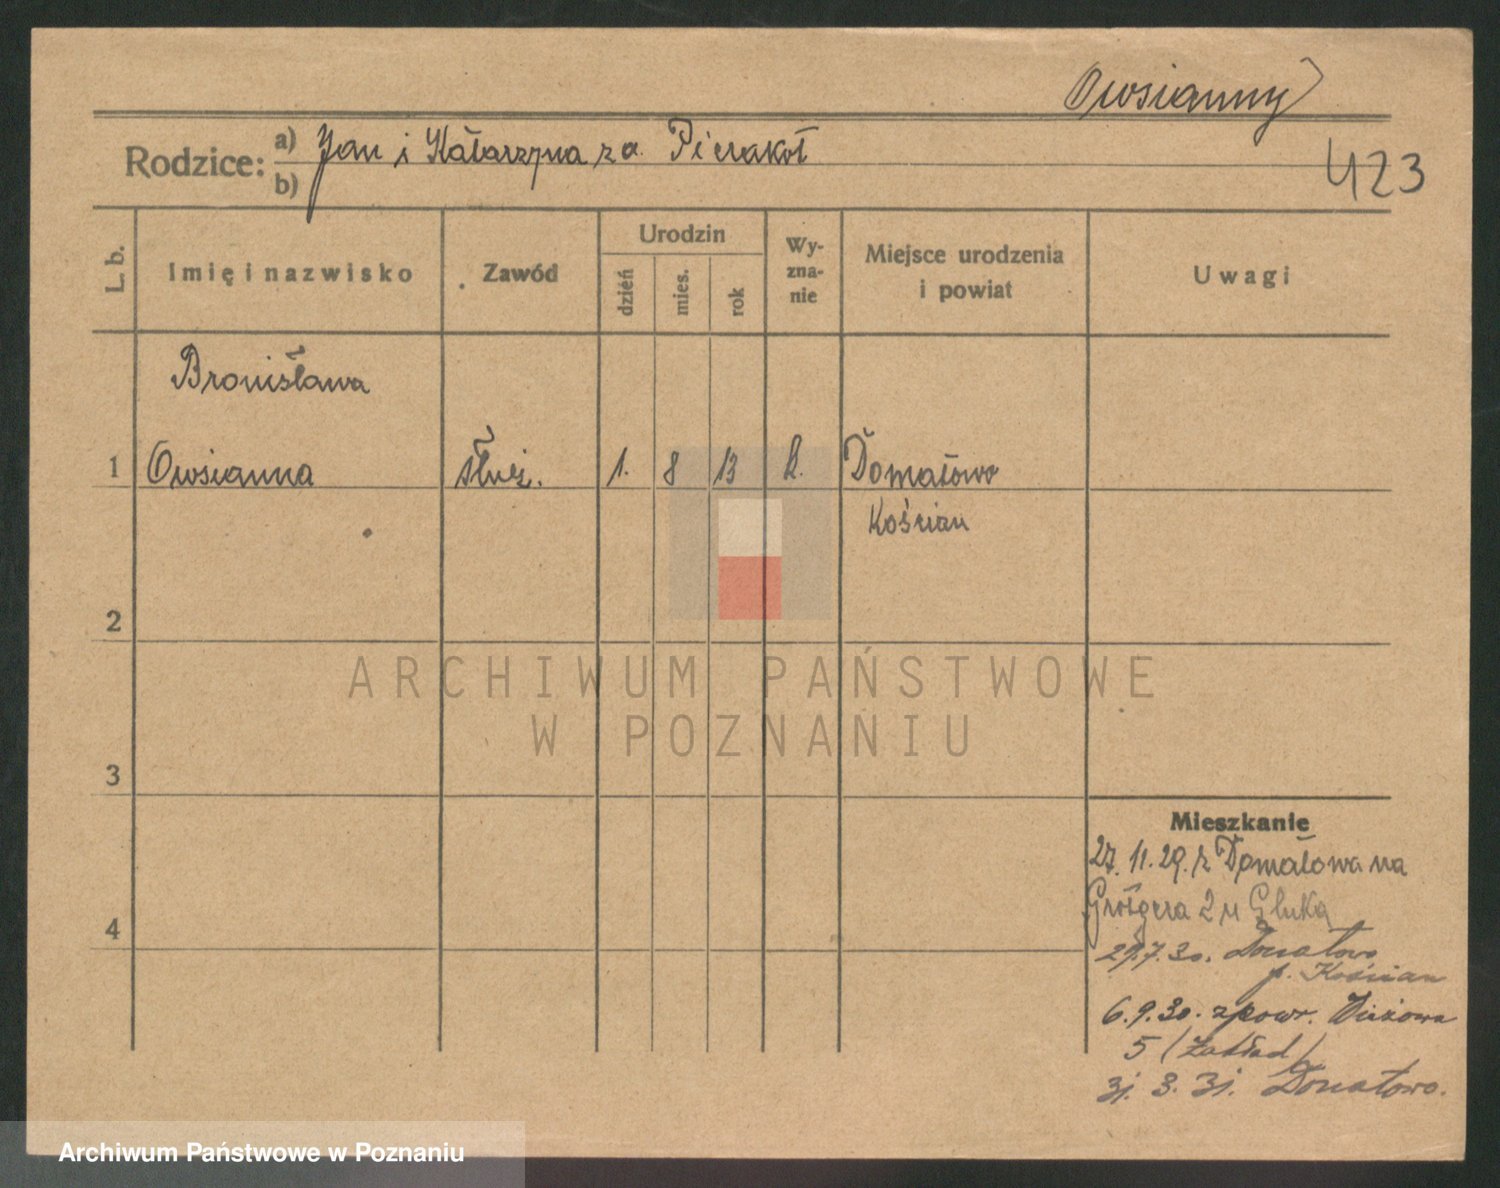 Owsianny
Rodzice: a) Jan i Katarzyna z d. Pierakoł
b)
423
L. b.
Imię i nazwisko
Zawód
Urodzin
dzień
mies.
rok
Wy-
zna-
nie
Miejsce urodzenia
i powiat
Uwagi
Bronisława
1 Owsianna służ. 1. 8 13 k. Domatowo
Kościan
2
3
4
ARCHIWUM PAŃSTWOWE
W POZNANIU
Mieszkanie
27. 11. 29. z Domatowa na
Grotgera 2 u Gluka
29.7.30. Donatowo
p. Kościan
6.9.30. zpowr.
5 (zakład)
31. 3. 31. Donatowo.
Archiwum Państwowe w Poznaniu